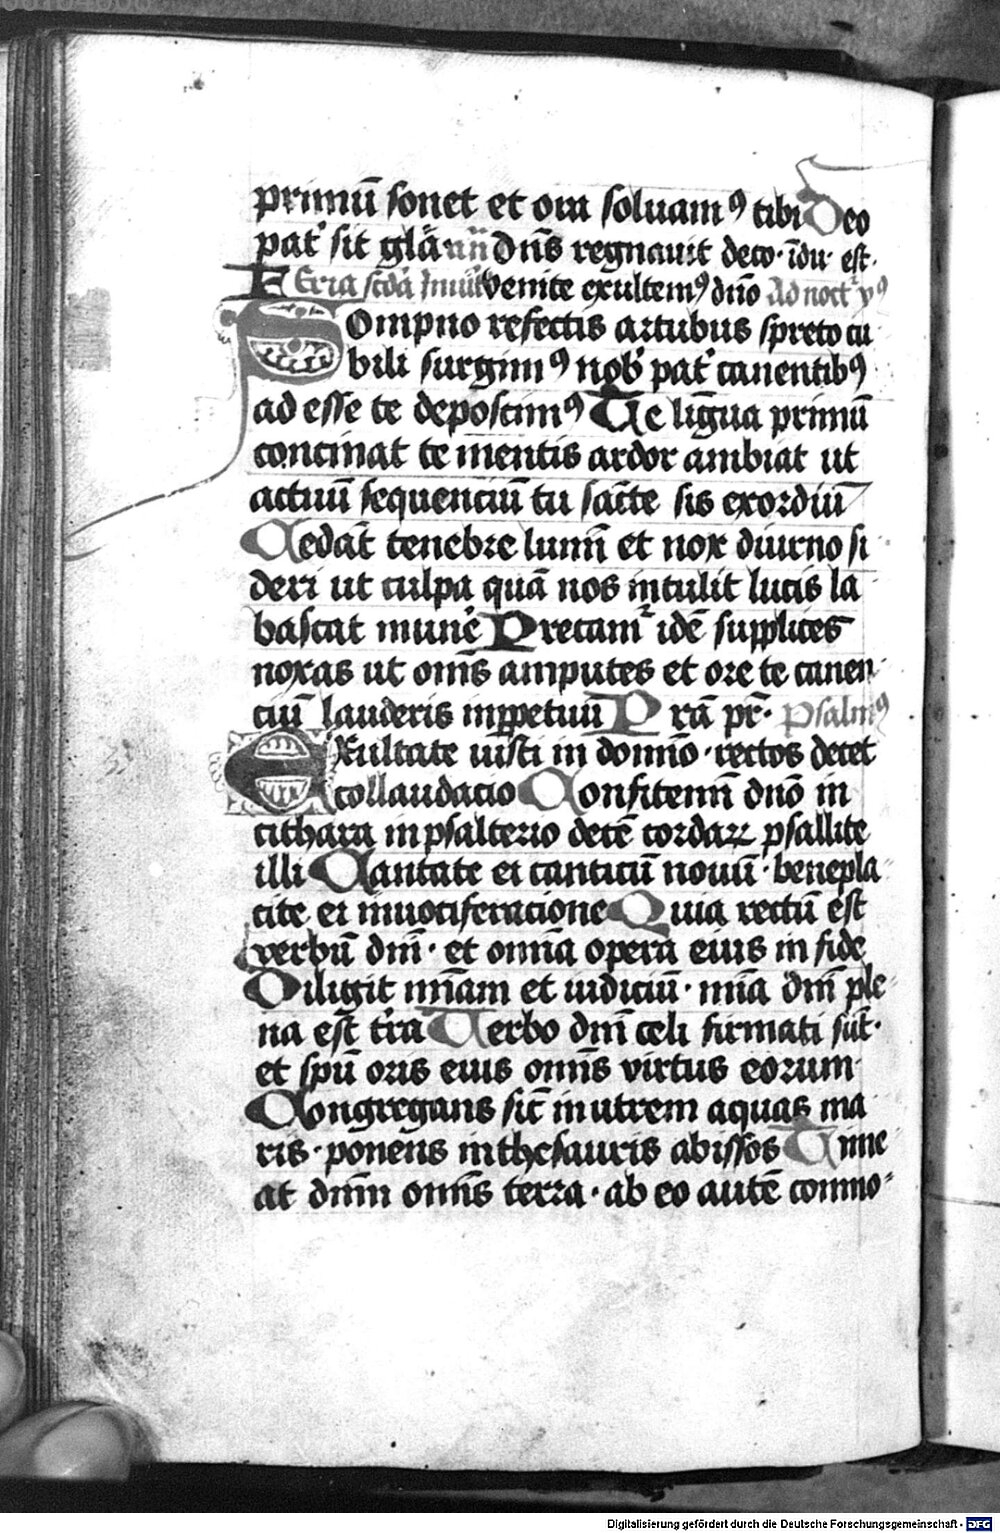 primū sonet et ora soluamꝰ tibi Deo
pat͛ sit glā nn̄ Dn̄s regnauit deco· īdu· est·
FEria scd̄a Inuit͛ Venite exultemꝰ dn̄o Ad noct͛ yꝰ
Sompno refectis artubus spreto cu
bili surgimꝰ nob̄ pat͛ canentibꝰ
ad esse te deposcimꝰ Te lingua primū
concinat te mentis ardor ambiat ut
actuū sequenciū tu sācte sis exordiū
Cedāt tenebre lumī et nox diurno si
deri ut culpa quā nos intulit lucis la
bascat mun͛e Precam͛ idē supplices
noxas ut om̄s amputes et ore te canen
ciū lauderis inꝑpetuū Prā pr̄· psalmꝰ
EXultate iusti in domīo · rectos decet
collaudacio Confitemī dn̄o in
cithara in psalterio decē cordaꝝ psallite
illi Cantate ei canticū nouū · benepla
cite ei inuociferacione Quia rectū est
verbū dnī · et omīa opera eius in fide
Diligit mīam et iudiciū · mīa dnī ple
na est t͛ra Verbo dnī celi firmati sūt·
et spū oris eius om̄s virtus eorum
Congregans sic̄ in utrem aquas ma
ris · ponens in thesauris abissos Time
at dnm̄ om̄is terra · ab eo autē conmo⸗
Digitalisierung gefördert durch die Deutsche Forschungsgemeinschaft - DFG